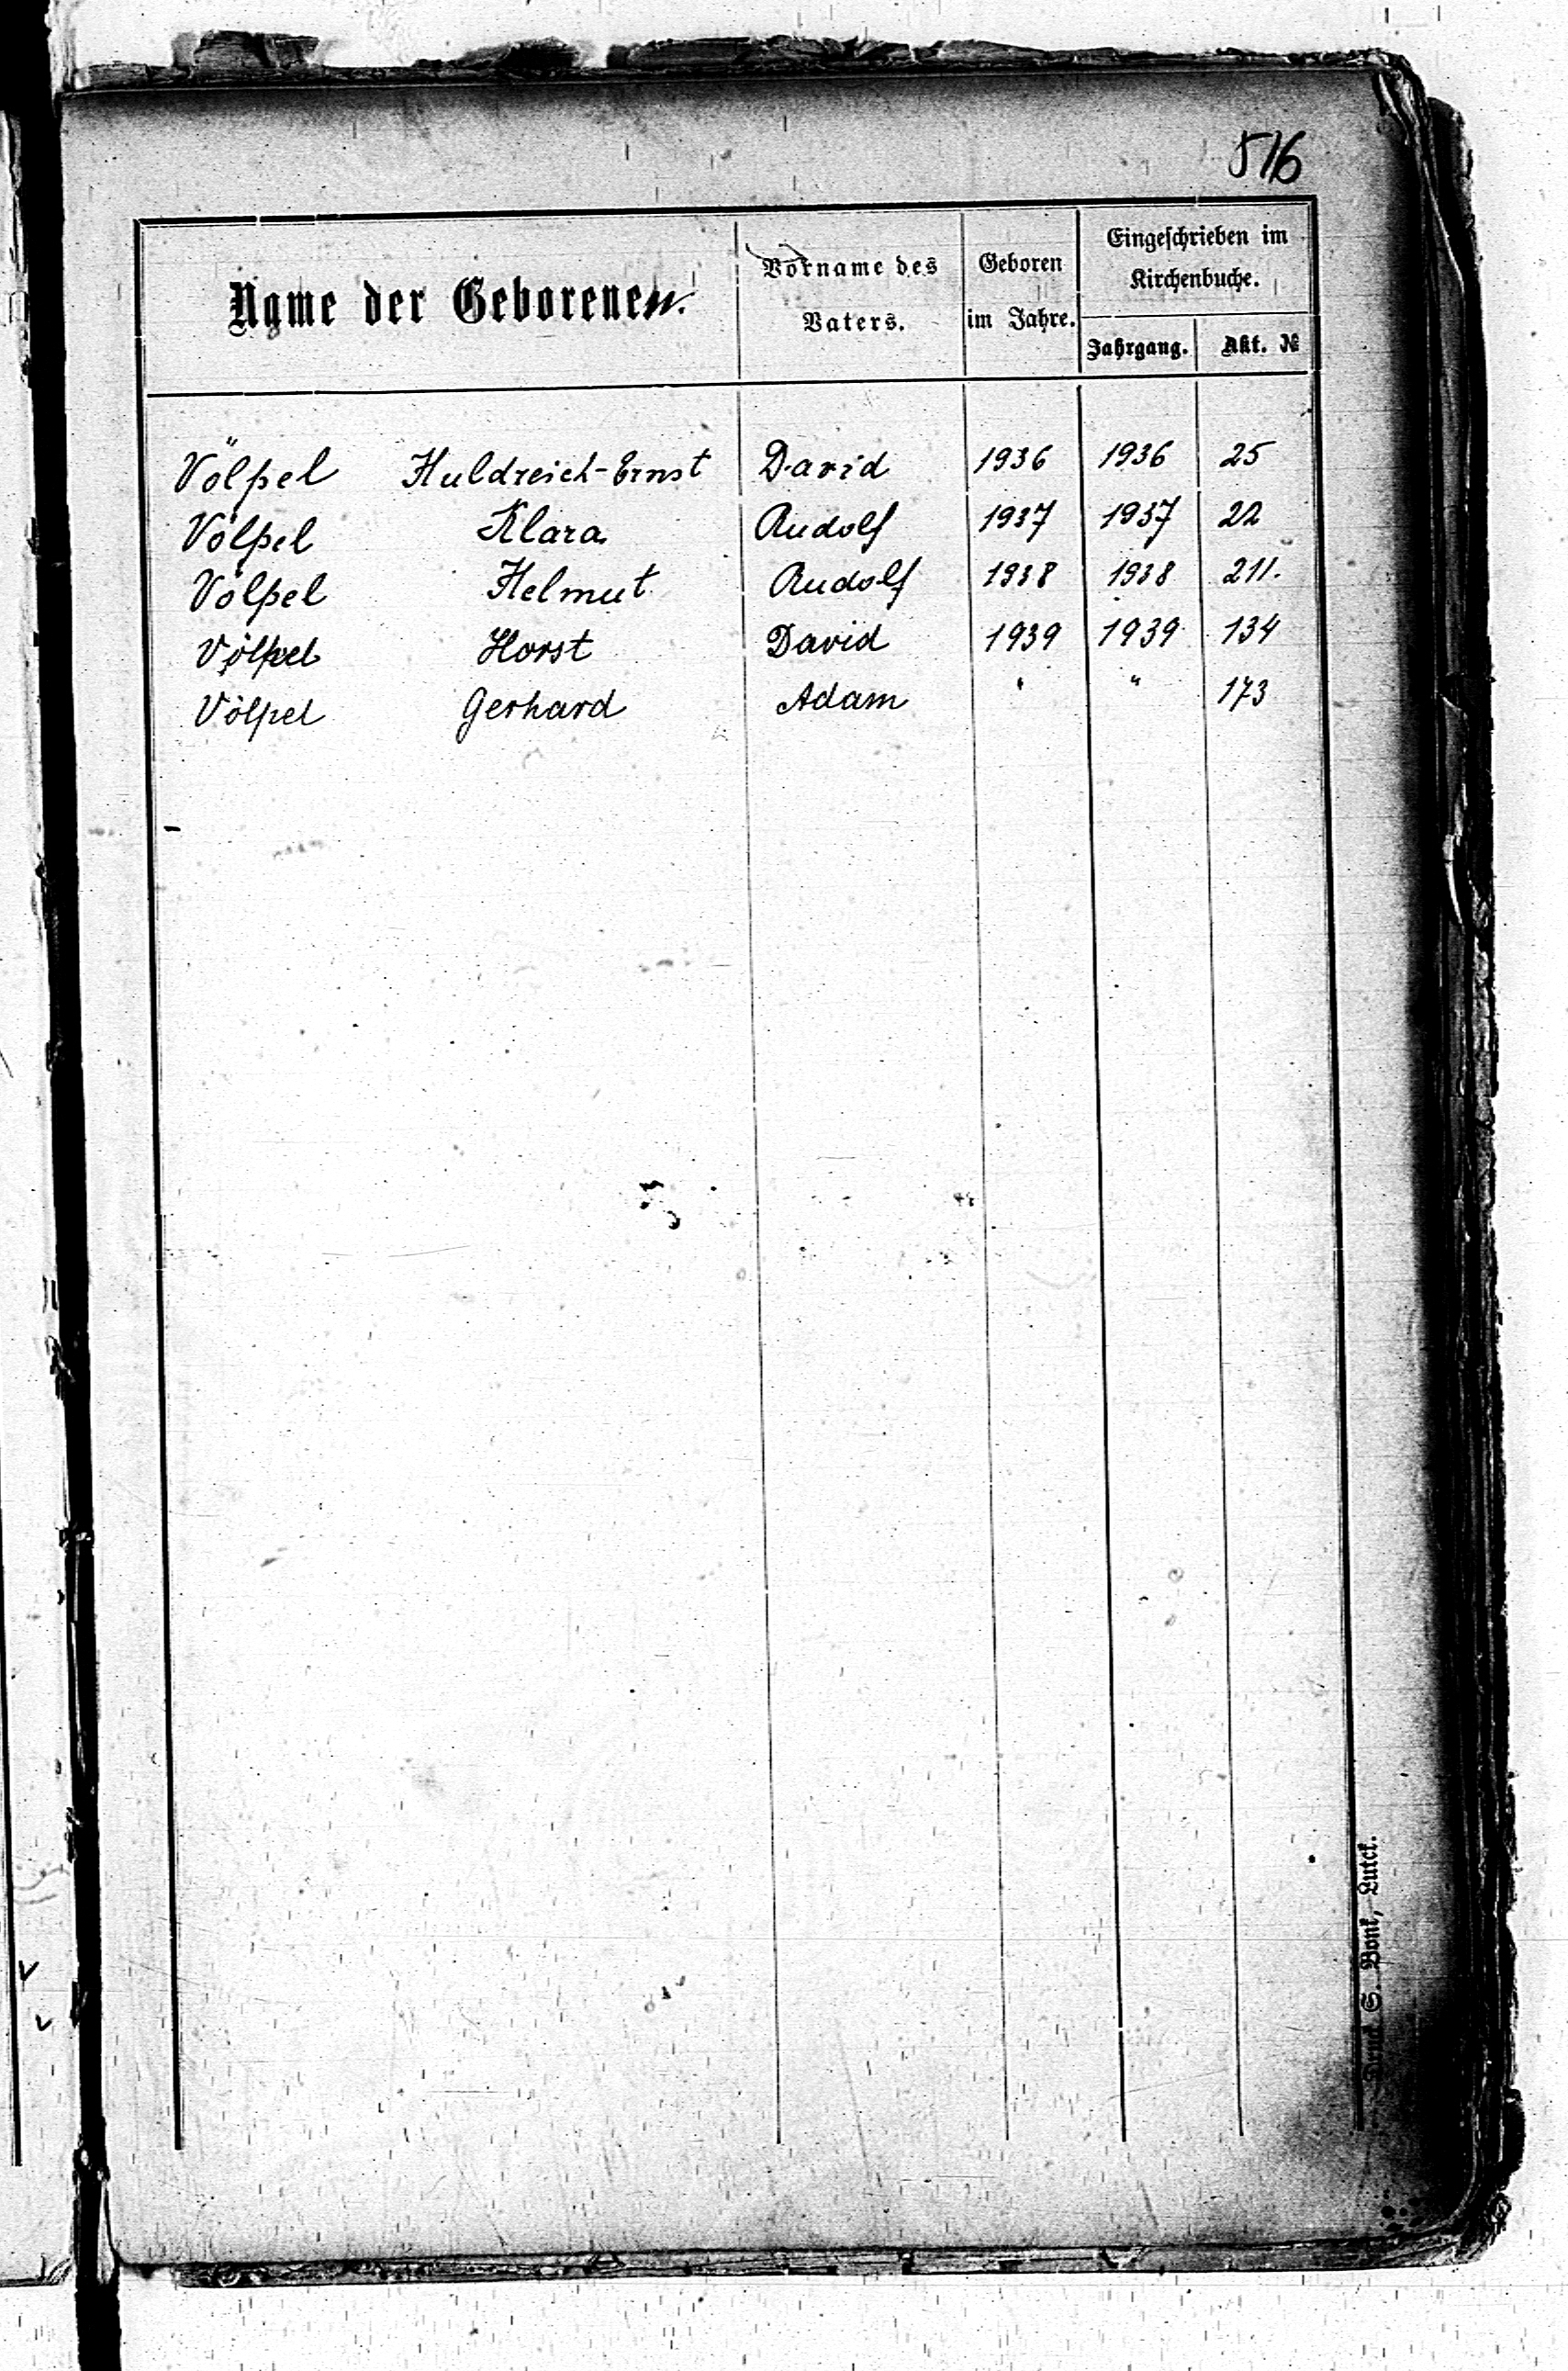 516
Name der Geborenen.
Vorname des Vaters.
Geboren im Jahre.
Eingeschrieben im Kirchenbuche.
Jahrgang.
Akt. №
Völpel Huldreich-Ernst David 1936 1936 25
Völpel Klara Rudolf 1937 1937 22
Völpel Helmut Rudolf 1938 1938 211.
Völpel Horst David 1939 1939 134
Völpel Gerhard Adam " " 173
Druck S. Bonk, Lutck.